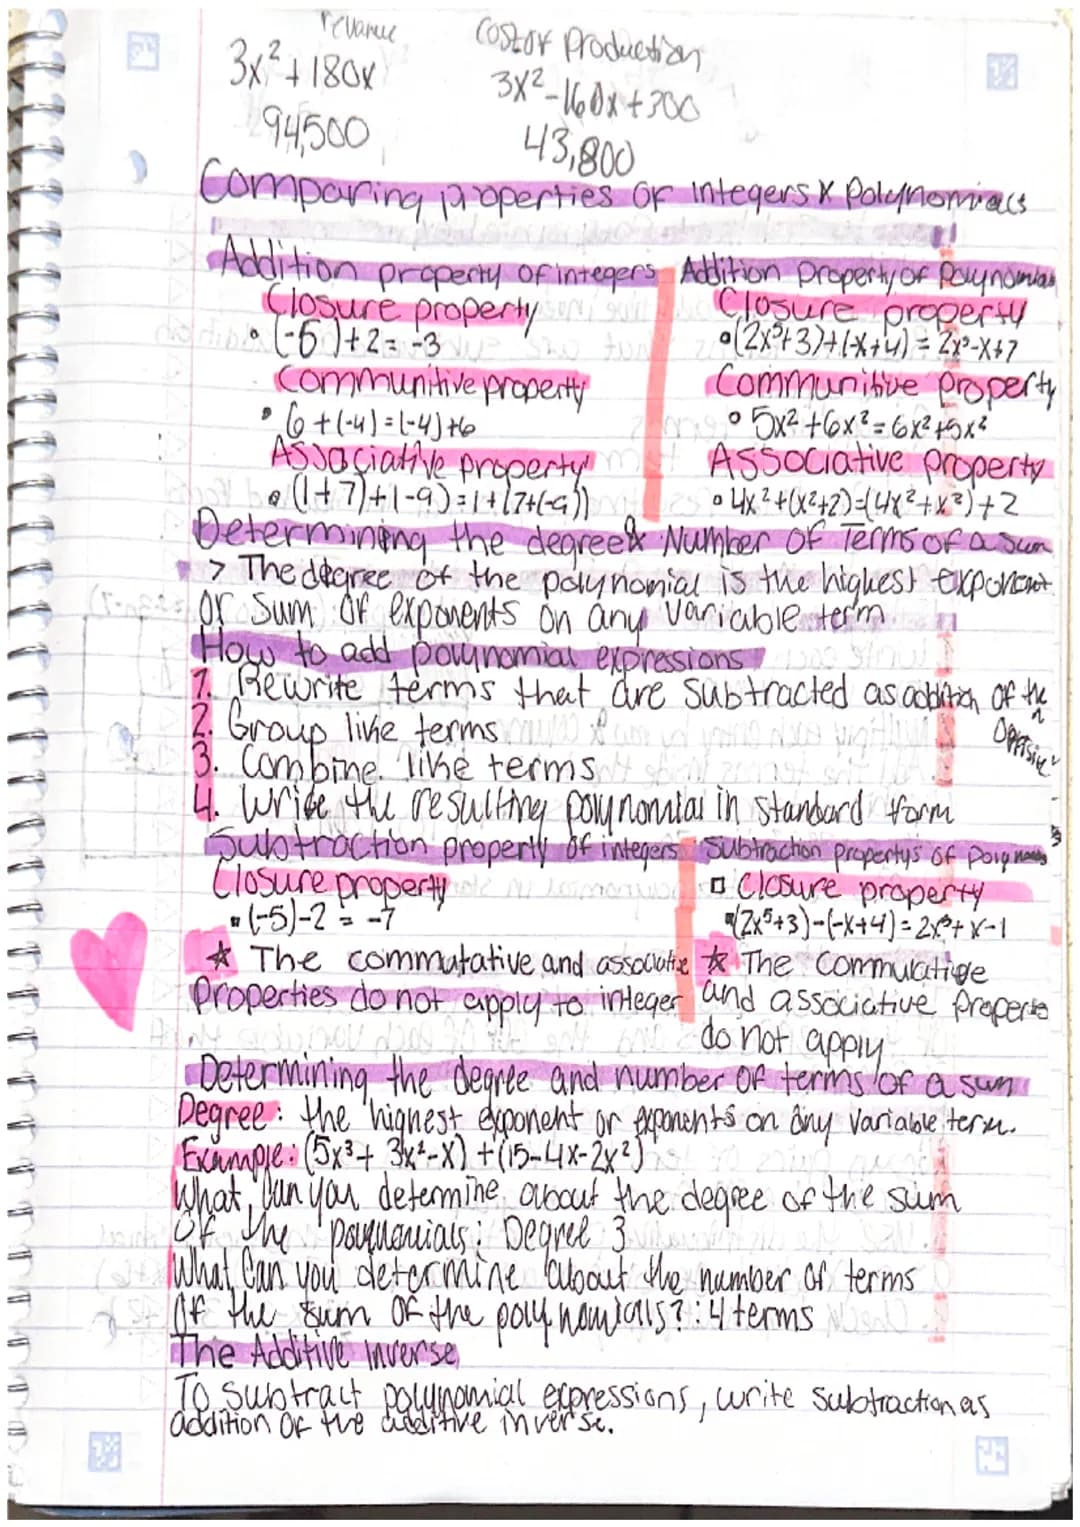 revanue
cost of production
3x² + 180x
3x² - 160x + 300
94,500
43,800
Comparing properties of integers & Polynomials
Addition property of integers
Closure property
• (-5) + 2 = -3
Communitive property
• 6 + (-4) = (-4) + 6
Associative property
• (1 + 7) + (-9) = 1 + (7 + (-9))
Addition Property of Polynomials
Closure property
• (2x⁵+3)+(-x+4) = 2x⁵-x+7
Communitive Property
• 5x² + 6x² = 6x² + 5x²
Associative property
• 4x² + (x²+2) = (4x² + x²) + 2
Determining the degree & Number of Terms of a sum
> The degree of the polynomial is the highest exponent
or sum of exponents on any variable term
How to add polynomial expressions
1. Rewrite terms that are subtracted as addition of the opposite
2. Group like terms
3. Combine like terms
4. Write the resulting polynomial in standard form
Subtraction property of integers
Closure property
• (-5)-2 = -7
★ The commutative and associative
Properties do not apply to integer
Subtraction propertys of polynomials
□ Closure property
• (2x⁵+3)-(-x+4) = 2x⁵+x-1
★ The Commutative
and associative Properties
do not apply
Determining the degree and number of terms of a sum
Degree: the highest exponent or exponents on any variable term.
Example: (5x³ + 3x²-x) + (15-4x-2x²)
What can you determine about the degree of the sum
of the polynomials: Degree 3
What Can you determine about the number of terms
of the sum of the polynomials?: 4 terms
The Additive Inverse
To subtract polynomial expressions, write subtraction as
addition of the additive inverse.